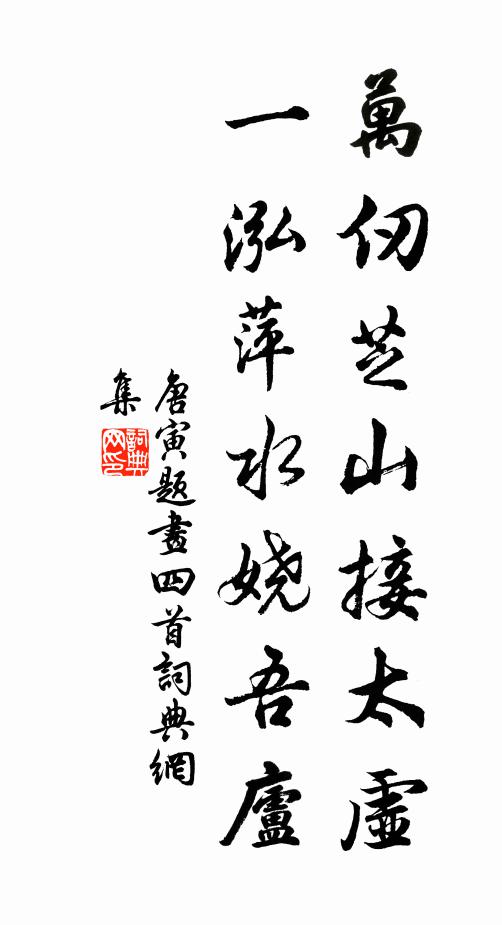 萬仞芝山接太虛
一泓萍水嬈吾廬
唐寅題畫四首詞典網
集
詞典
网印